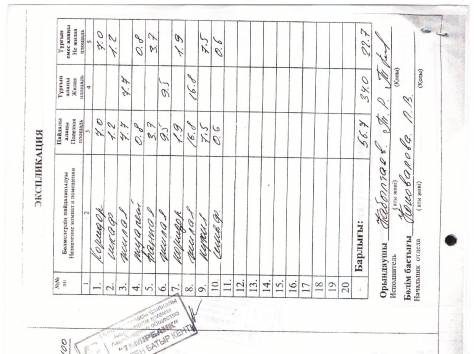 ЭКСПЛИКАЦИЯ
№№ пп | Бөлмелердің пайдаланылуы Назначение комнат и помещения | Пайдалы аланы Полезная площадь | Тұрғын аланы Жилая площадь | Тұрғын емес аланы Не жилая площадь
1 2 3 4 5
1. коридор 7.0 7.0
2. шкаф 1.2 1.2
3. жилая 7.7 7.7
4. туалет 0.8 0.8
5. ванная 3.7 3.7
6. жилая 9.5 9.5
7. коридор 1.9 1.9
8. жилая 16.8 16.8
9. кухня 7.5 7.5
10. шкаф 0.6 0.6
11.
12.
13.
14.
15.
16.
17.
18.
19.
20
Барлығы: 56.7 34.0 22.7
Орындаушы
Исполнитель (аты жөні) (Қолы)
Бөлім бастығы Коновалова
Начальник отдела (аты жөні) (Қолы)
"ТЕМIРБАНК"
БАТЫР КЕНТI